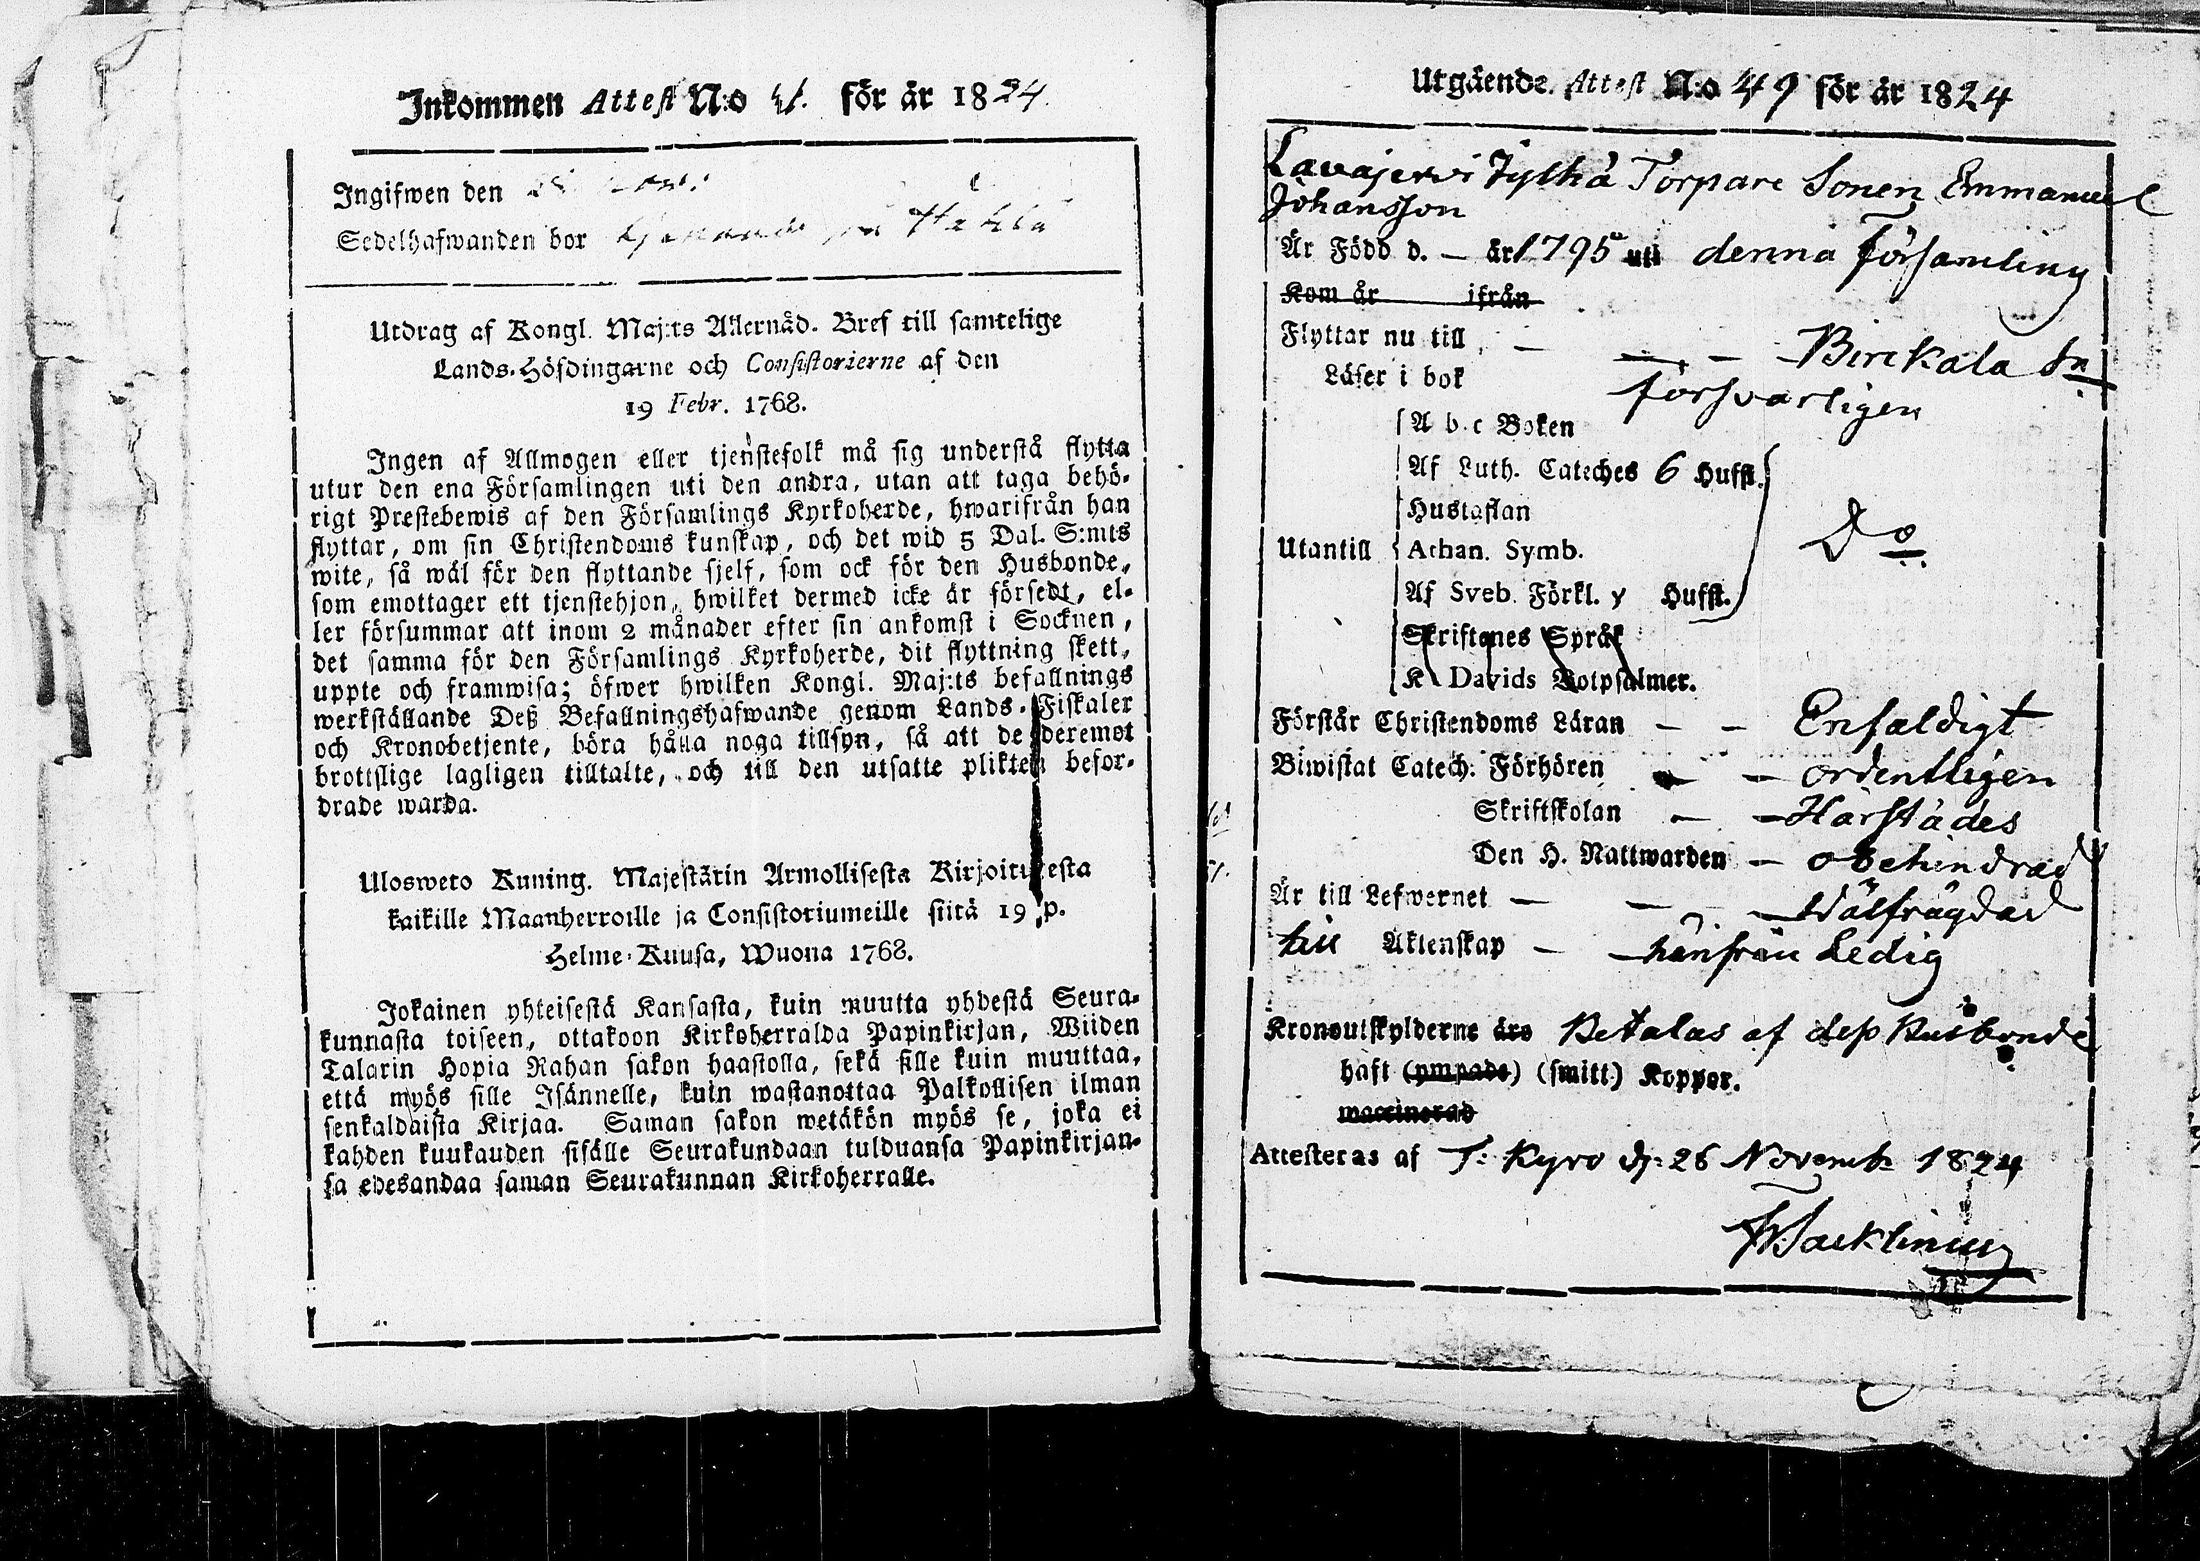 Inkommen Attest N:o 41. för år 1824.
Ingifwen den
Sedelhafwanden bor
Utdrag af Kongl. Maj:ts Allernåd. Bref till samtelige
Lands-Höfdingarne och Consistorierne af den
19 Febr. 1768.
Ingen af Allmogen eller tjenstefolk må sig understå flytta
utur den ena Församlingen uti den andra, utan att taga behö-
rigt Prestebewis af den Församlings Kyrkoherde, hwarifrån han
flyttar, om sin Christendoms kunskap, och det wid 5 Dal. S:mts
wite, så wäl för den flyttande sjelf, som ock för den Husbonde,
som emottager ett tjenstehjon, hwilket dermed icke är försedt, el-
ler försummar att inom 2 månader efter sin ankomst i Socknen,
det samma för den Församlings Kyrkoherde, dit flyttning skett,
uppte och framwisa; öfwer hwilken Kongl. Maj:ts befallnings
werkställande Deß Befallningshafwande genom Lands-Fiskaler
och Kronobetjente, böra hålla noga tillsyn, så att de deremot
brottslige lagligen tilltalte, och till den utsatte plikten befor-
drade warda.
Ulosweto Kuning. Majestätin Armollisesta Kirjoituxesta
kaikille Maanherroille ja Consistoriumeille siitä 19 p.
Helme-Kuusa, Wuona 1768.
Jokainen yhteisestä Kansasta, kuin muutta yhdestä Seura-
kunnasta toiseen, ottakoon Kirkoherralda Papinkirjan, Wiiden
Talarin Hopia Rahan sakon haastolla, sekä sille kuin muuttaa,
että myös sille Isännelle, kuin wastanottaa Palkollisen ilman
senkaldaista Kirjaa. Saman sakon wetäkön myös se, joka ei
kahden kuukauden sisälle Seurakundaan tulduansa Papinkirjan-
sa edesandaa saman Seurakunnan Kirkoherralle.
Utgående Attest N:o 49 för år 1824
Lavajervi Jylhä Torpare Sonen Emmanuel
Johansson
Är Född d. — år 1795 uti denna Församling
Kom år ifrån
Flyttar nu till — — — Birckala Sn
Läser i bok försvarligen
A b c Boken
Af Luth. Cateches 6 Hufst.
Hustaflan
Utantill Athan. Symb. Do
Af Sveb. Förkl. y Hufst.
Skriftenes Språk
K Davids Botpsalmer.
Förstår Christendoms Läran — — Enfaldigt
Biwistat Catech: Förhören — — ordentligen
Skriftskolan — — Härstädes
Den H. Nattwarden — obehindrad
Är till Lefwernet — — — Wälfrägdad
till Äktenskap — — härifrån Ledig
Kronoutskylderne äro Betalas af dess Husbonde
haft (ympade) (smitt) Koppor.
waccinerad
Attesteras af T: Kyro d. 26 Novemb: 1824